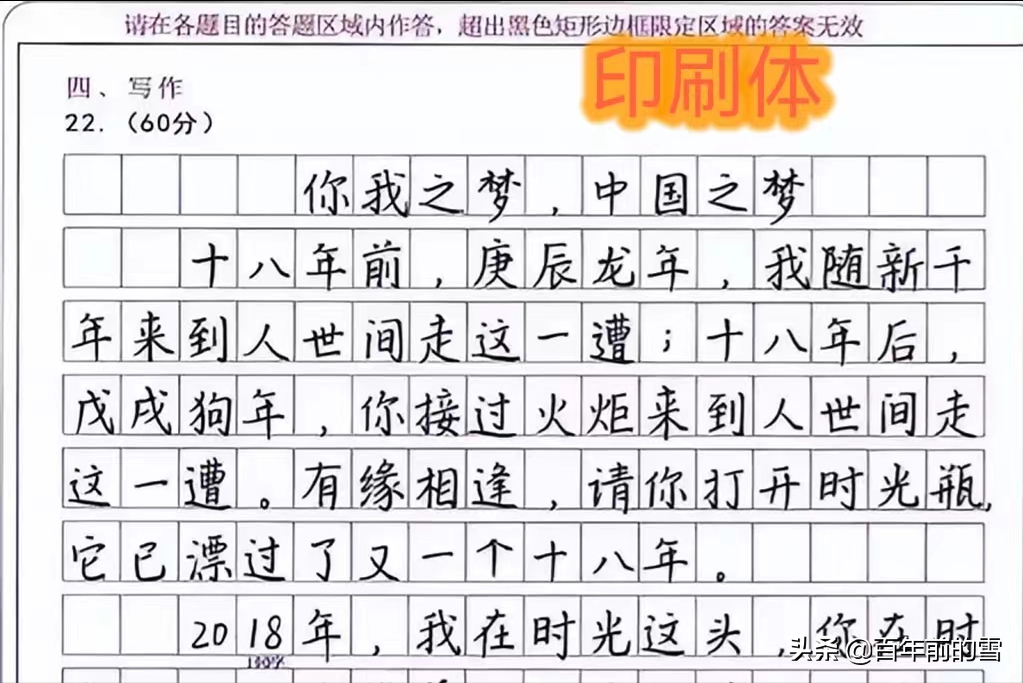 请在各题目的答题区域内作答，超出黑色矩形边框限定区域的答案无效
印刷体
四、写作
22.（60分）
你我之梦，中国之梦
十八年前，庚辰龙年，我随新千
年来到人世间走这一遭；十八年后，
戊戌狗年，你接过火炬来到人世间走
这一遭。有缘相逢，请你打开时光瓶，
它已漂过了又一个十八年。
2018年，我在时光这头，你在时
头条@百年前的雪